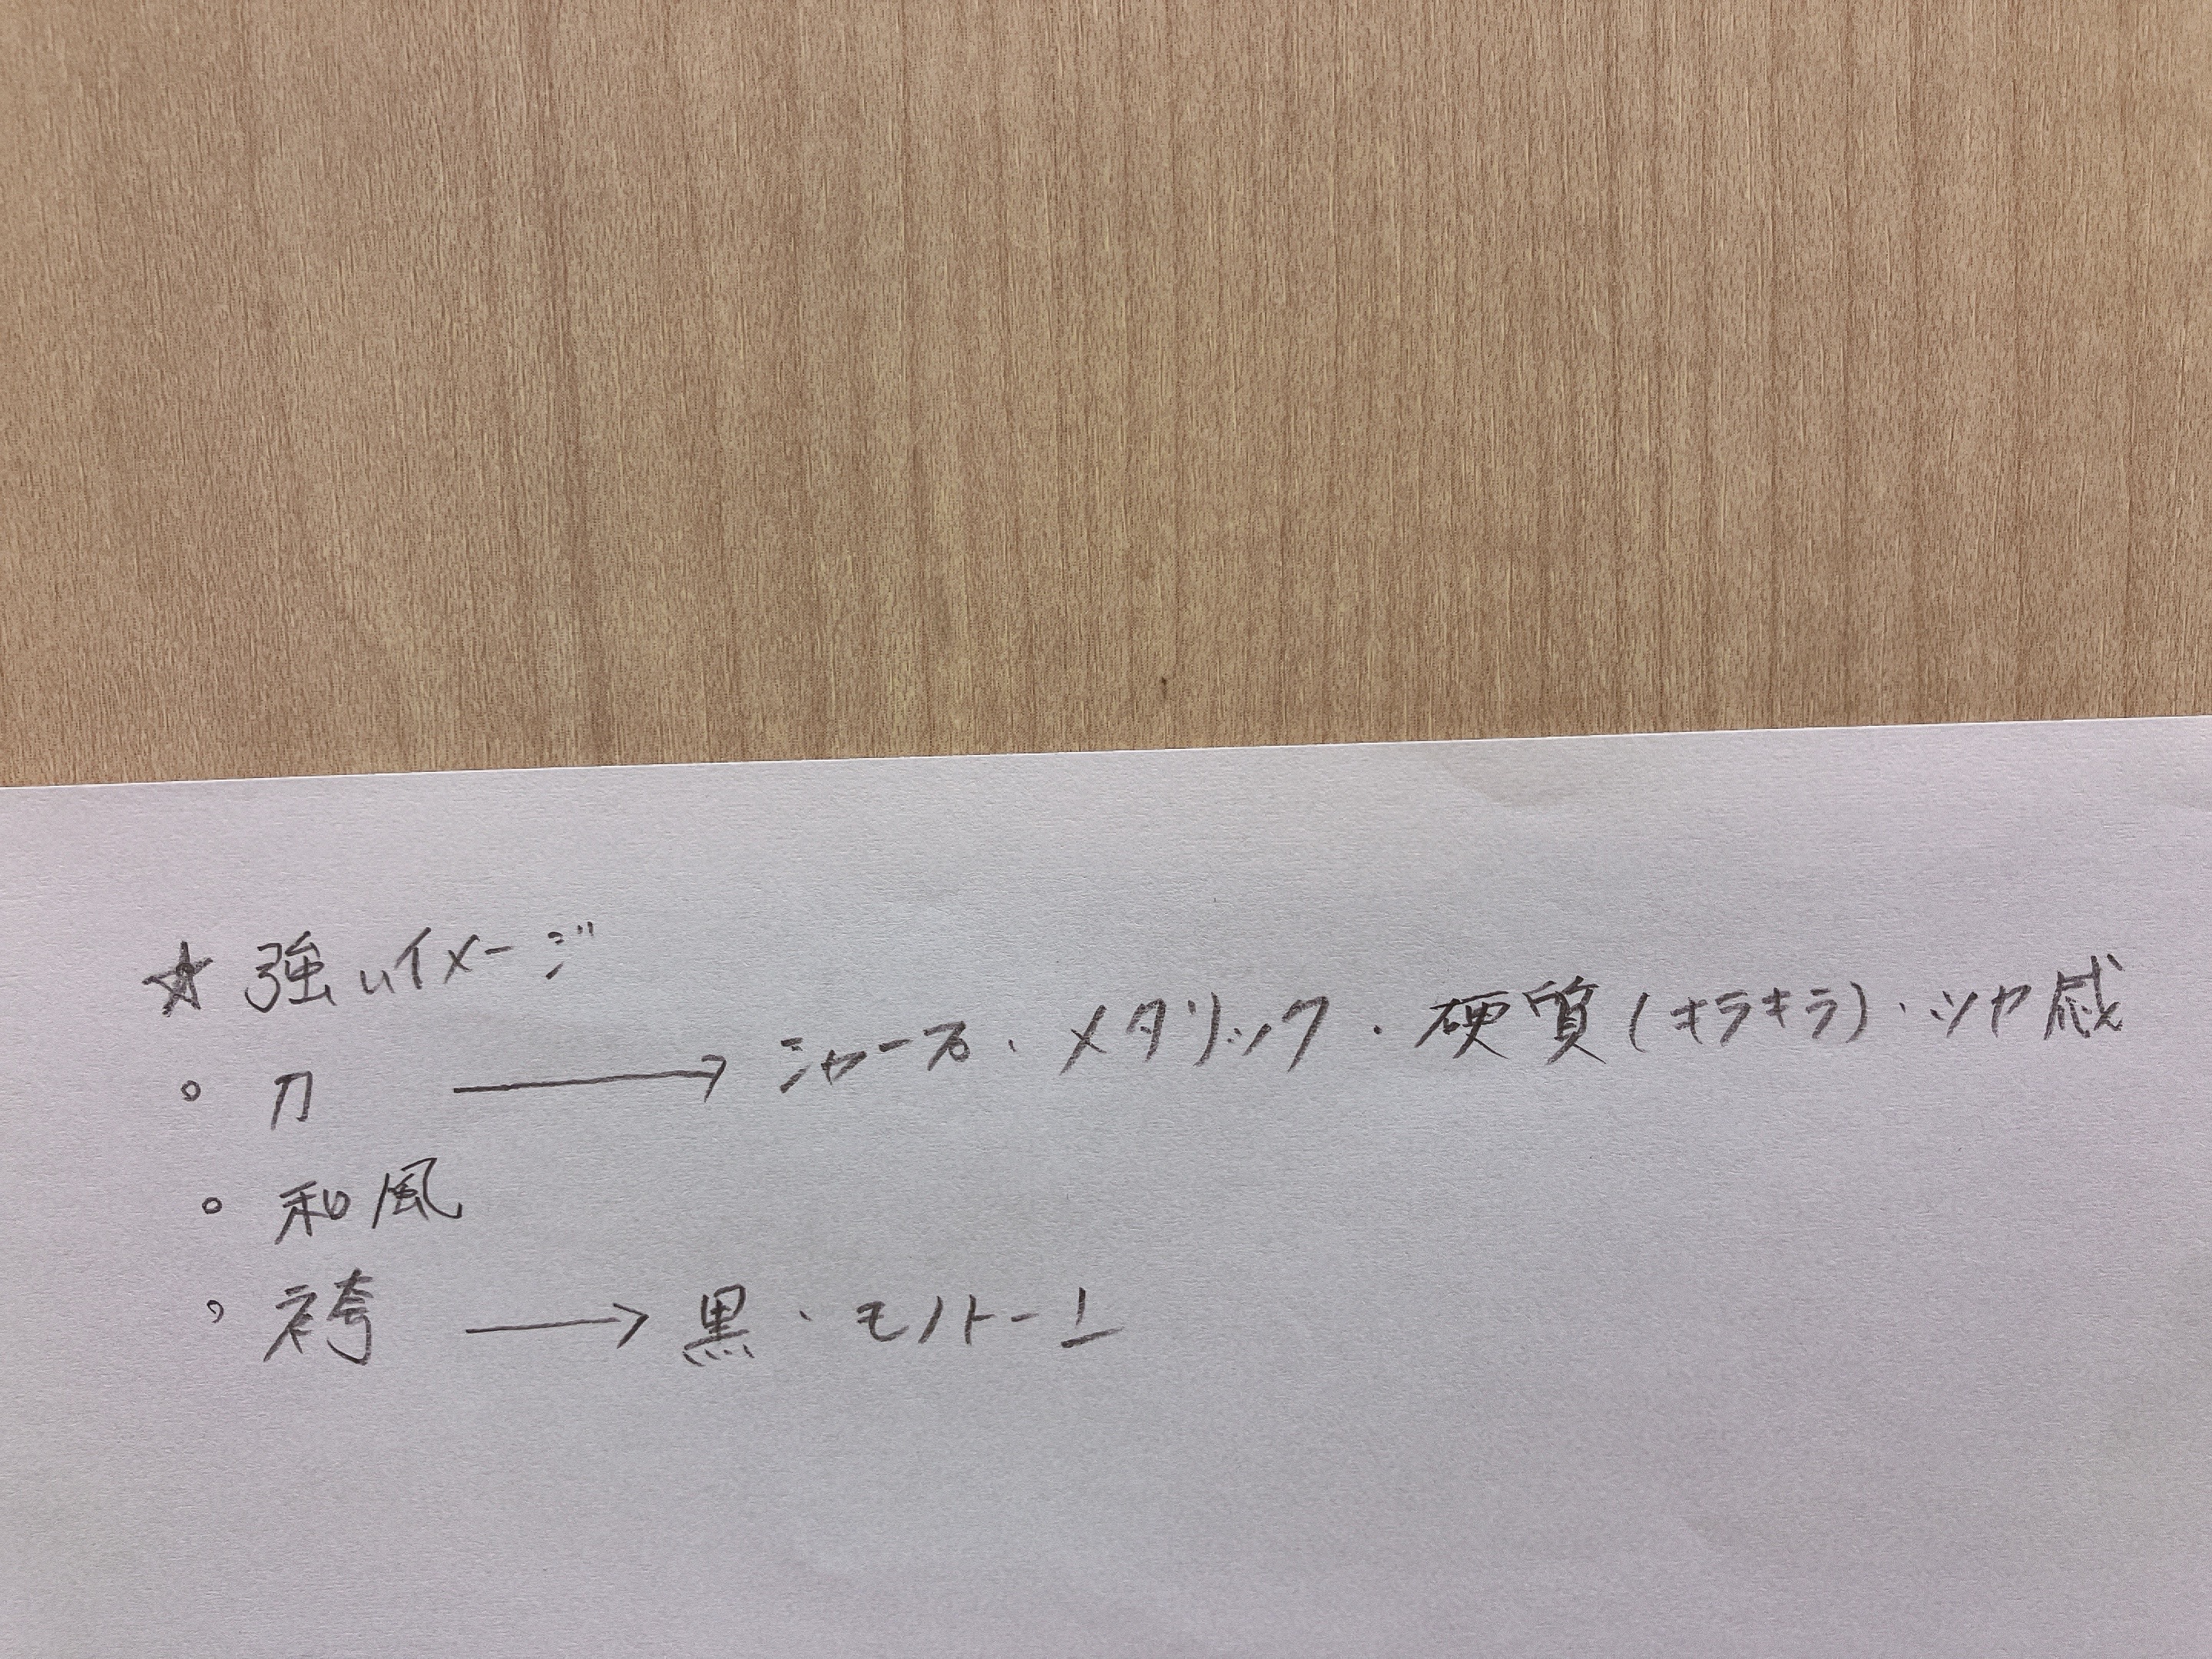 ☆ 強いイメージ
。刀 → シャープ、メタリック・硬質(キラキラ)・ツヤ感
。和風
。袴 → 黒・モノトーン